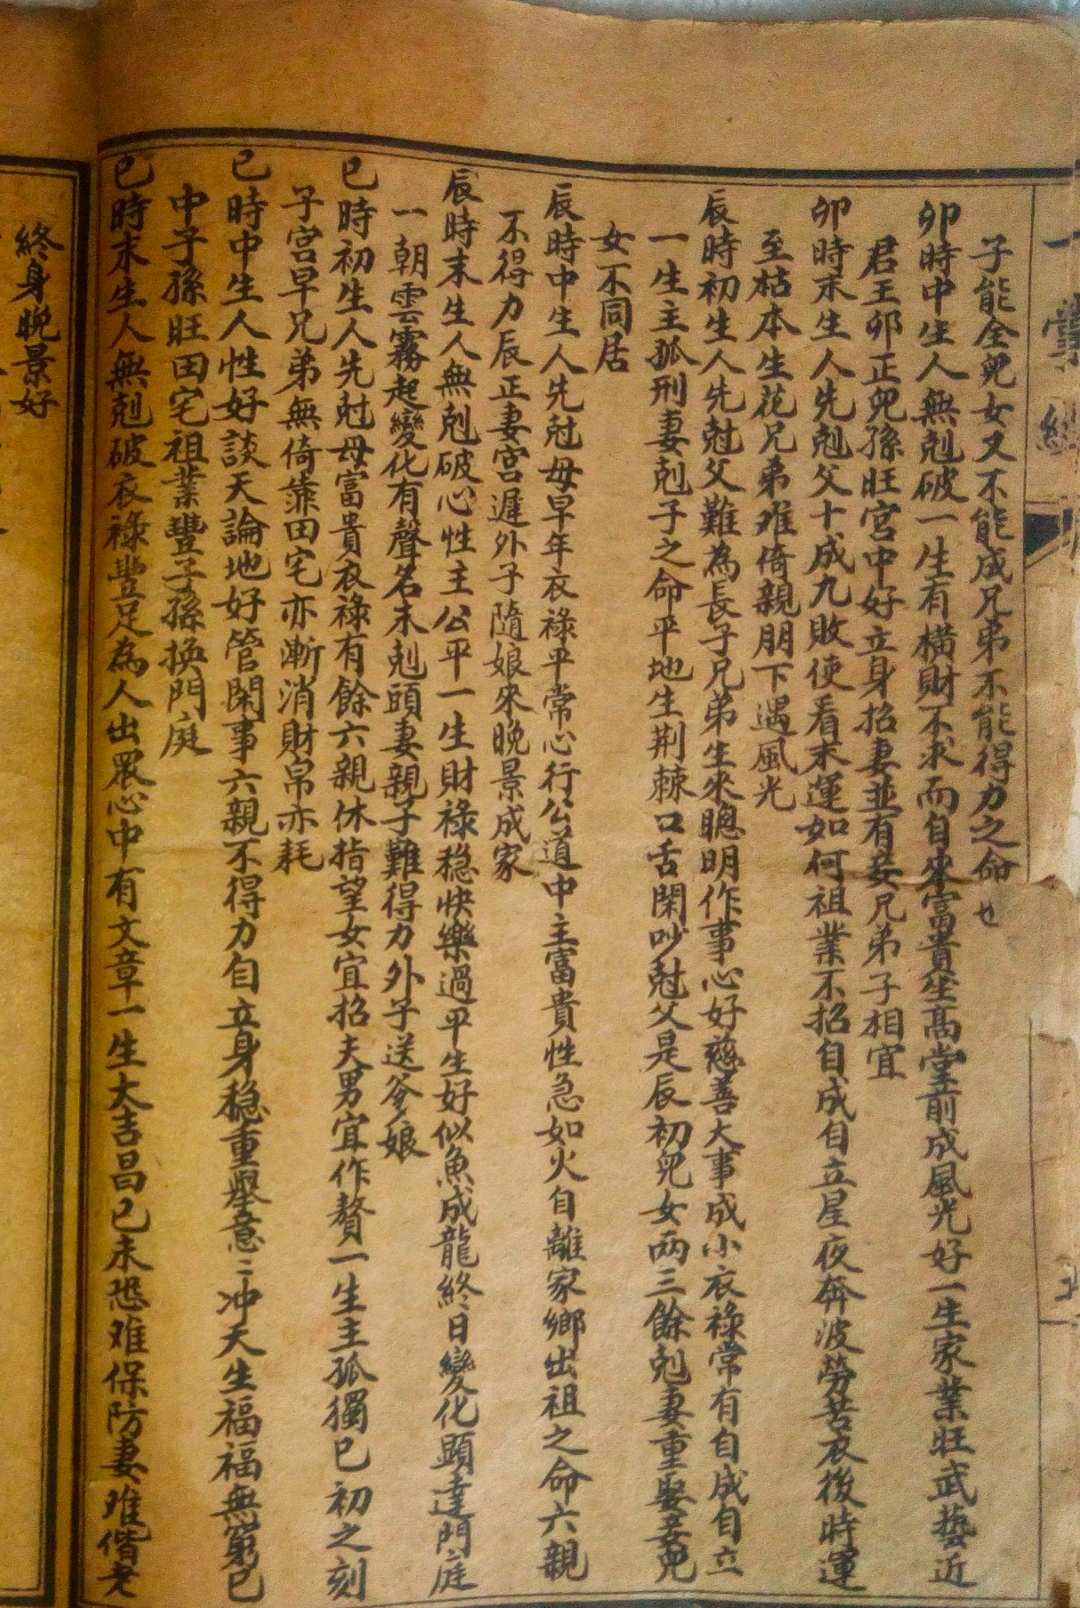 子能全兒女又不能成兄弟不能得力之命也
卯時中生人無剋破一生有橫財不求而自來富貴坐高堂前成風光好一生家業旺武藝近
君王卯正兒孫旺宮中好立身招妻並有妾兄弟子相宜
卯時末生人先剋父十成九敗使看末運如何祖業不招自成自立星夜奔波勞苦衣後時運
至枯木生花兄弟难倚親朋下遇風光
辰時初生人先尅父難為長子兄弟生來聰明作事心好慈善大事成小衣祿常有自成自立
一生主孤刑妻剋子之命平地生荆棘口舌閑吵尅父是辰初兒女两三餘剋妻重娶妾兒
女不同居
辰時中生人先尅母早年衣祿平常心行公道中主富貴性急如火自離家鄉出祖之命六親
不得力辰正妻宮遲外子隨娘來晚景成家
辰時末生人無剋破心性主公平一生財祿稳快樂過平生好似魚成龍終日變化顕達門庭
一朝雲霧起變化有聲名末剋頭妻親子難得力外子送爷娘
巳時初生人先尅母富貴衣祿有餘六親休指望女宜招夫男宜作贅一生主孤獨巳初之刻
子宮早兄弟無倚靠田宅亦漸消財帛亦耗
巳時中生人性好談天論地好管閑事六親不得力自立身稳重舉意〻冲天生福福無窮巳
中子孫旺田宅祖業豐子孫換門庭
巳時末生人無剋破衣祿豐足為人出眾心中有文章一生大吉昌巳末恐难保防妻难偕老
終身晚景好